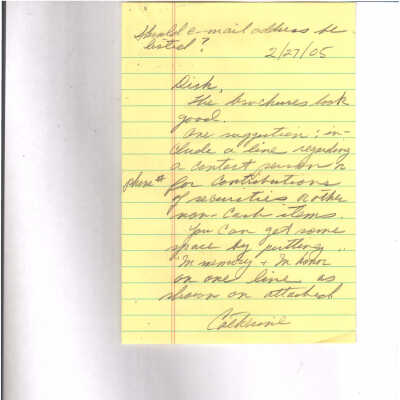 Should e-mail address be
listed?
2/27/05
Dick,
The brochures look
good.
One suggestion: in-
clude a line regarding
a contact person &
phone #
for contributions
of securities & other
non-cash items.
You can get some
space by putting
"In memory + In honor
on one line as
shown on attached
Catherine